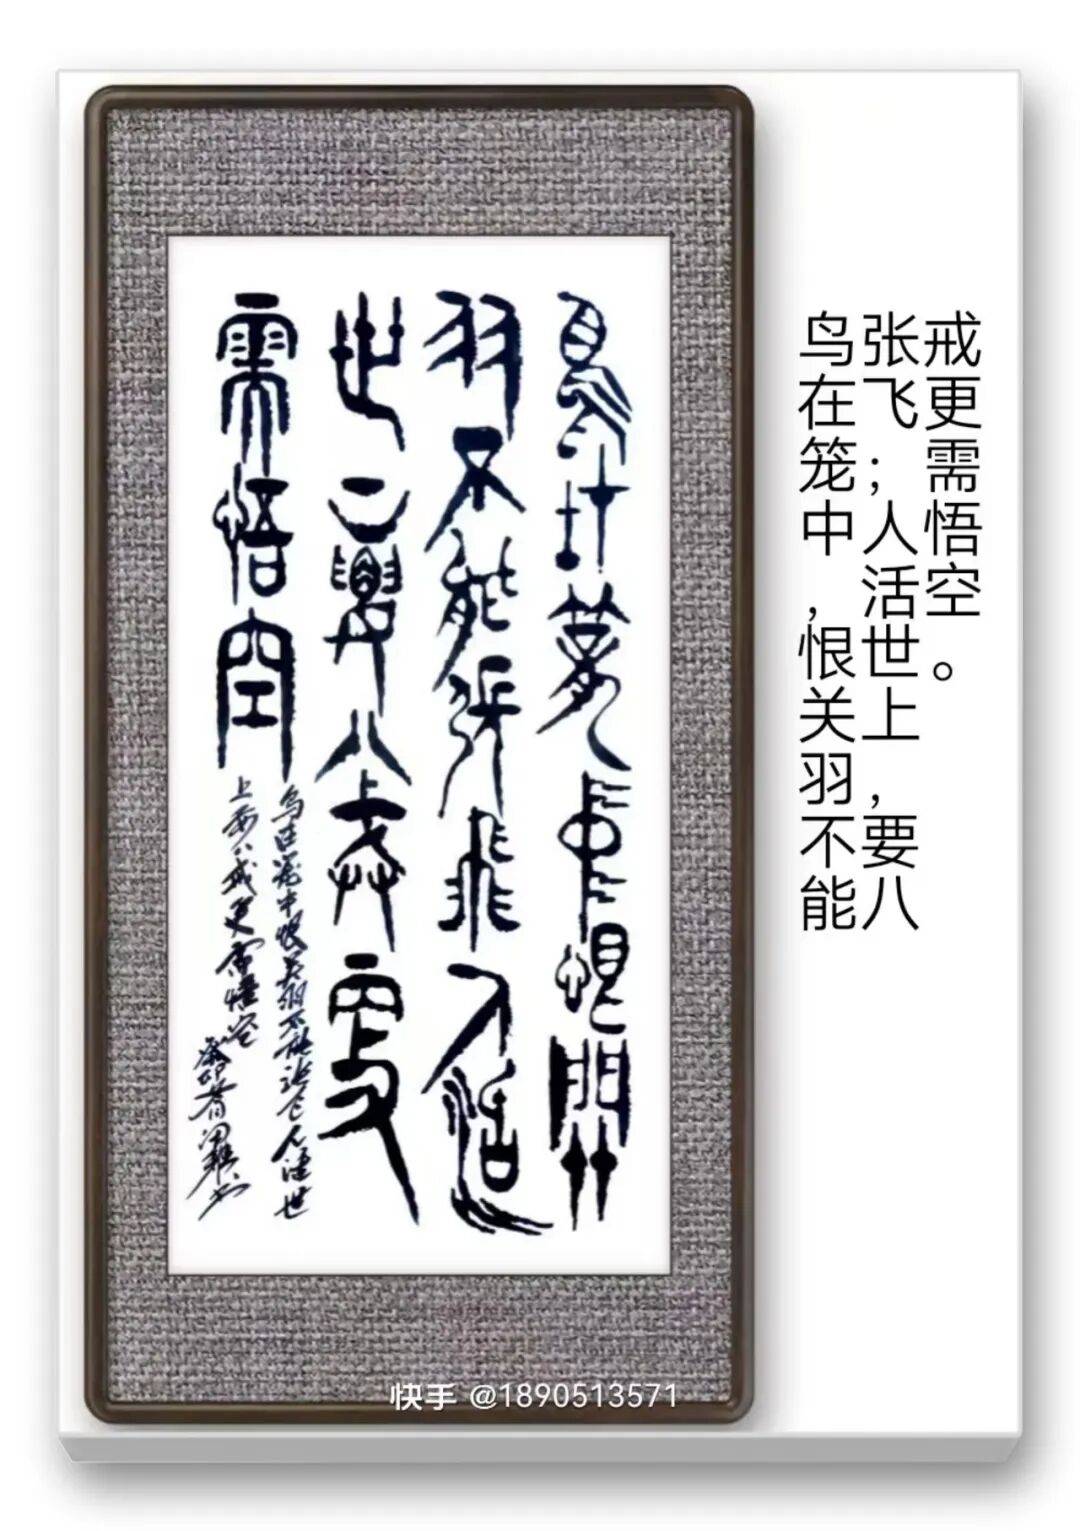 鳥在籠中恨關
羽不能張飛人活
世上要八戒更
需悟空
鸟在笼中恨关羽不能张飞人活世
上要八戒更需悟空
癸卯
鸟在笼中，恨关羽不能
张飞；人活世上，要八
戒更需悟空。
快手 @1890513571